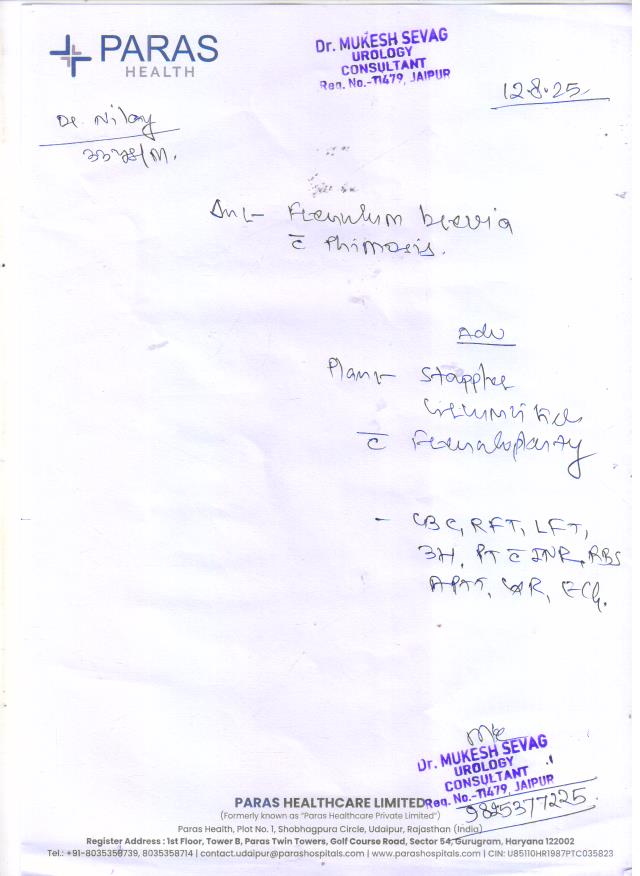 PARAS
HEALTH
Dr. MUKESH SEVAG
UROLOGY
CONSULTANT
Reg. No.-11479, JAIPUR
12.8.25
Dr. Nilay
33 yrs/M.
Frenulum brevia
c̄ Phimosis.
Adv
Plan:- Stappler
c̄ Frenuloplasty
- CBC, RFT, LFT,
PT c̄ INR, RBS
APTT, ECG.
Dr. MUKESH SEVAG
UROLOGY
CONSULTANT
Reg. No.-11479, JAIPUR
9825377225
PARAS HEALTHCARE LIMITED
(Formerly known as "Paras Healthcare Private Limited")
Paras Health, Plot No. 1, Shobhagpura Circle, Udaipur, Rajasthan (India)
Register Address : 1st Floor, Tower B, Paras Twin Towers, Golf Course Road, Sector 54, Gurugram, Haryana 122002
Tel.: +91-8035358739, 8035358714 | contact.udaipur@parashospitals.com | www.parashospitals.com | CIN: U85110HR1987PTC035823